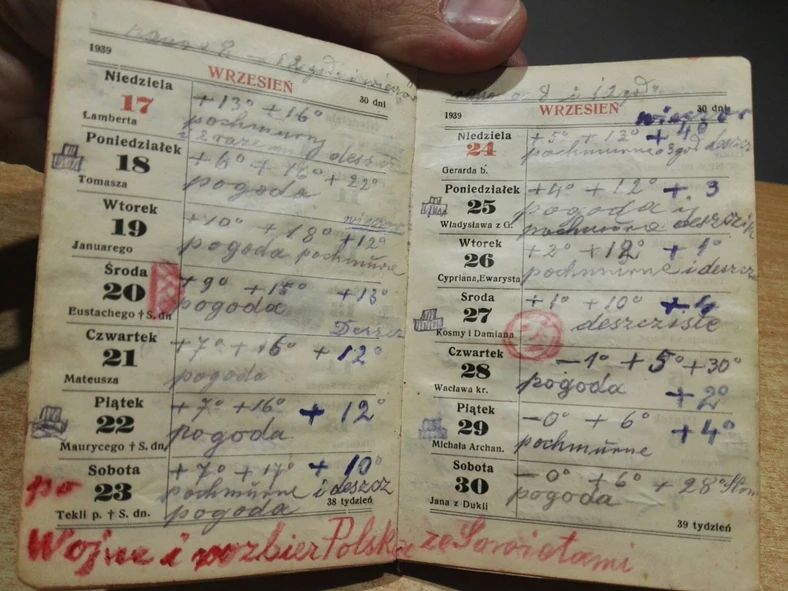 1939
WRZESIEŃ
30 dni
Niedziela
17
Lamberta
+13° +16°
pochmurny
2 razy deszcz
Poniedziałek
18
Tomasza
+6° +16° +22°
pogoda
Wtorek
19
Januarego
+10° +18° +12°
pogoda pochmurne
Środa
20
Eustachego † S. dn.
+9° +15° +13°
pogoda
Deszcz
Czwartek
21
Mateusza
+7° +16° +12°
pogoda
Piątek
22
Maurycego † S. dn.
+7° +16° +12°
pogoda
Sobota
23
Tekli p. † S. dn.
+7° +17° +10°
pochmurne i deszcz
pogoda
38 tydzień
po
Wojnie i rozbior Polski ze Sowietami
1939
WRZESIEŃ
30 dni
wieczór
Niedziela
24
Gerarda b.
+5° +13° +4°
pochmurne 3 god deszcz
Poniedziałek
25
Władysława z G.
+4° +12° +3
pogoda i
pochmurne deszczik
Wtorek
26
Cypriana, Ewarysta
+2° +12° +1°
pochmurne i deszcz
Środa
27
Kosmy i Damiana
+1° +10°
deszczisto
Czwartek
28
Wacława kr.
-1° +5° +30°
pogoda +2°
Piątek
29
Michała Archan.
-0° +6° +4°
pochmurne
Sobota
30
Jana z Dukli
-0° +6° +28°
pogoda
39 tydzień